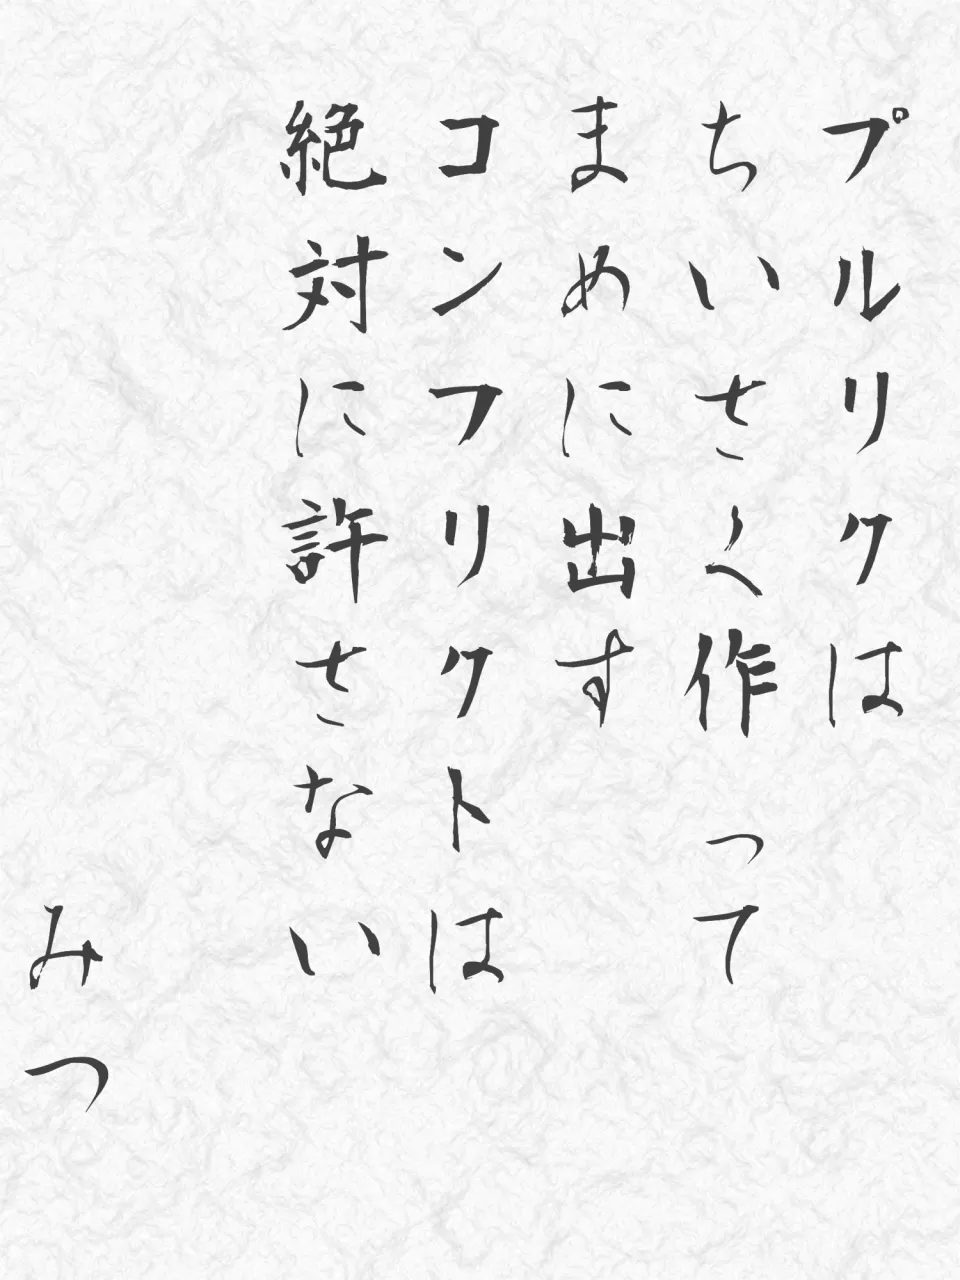 プルリクは
ちいさく作って
まめに出す
コンフリクトは
絶対に許さない
みつ